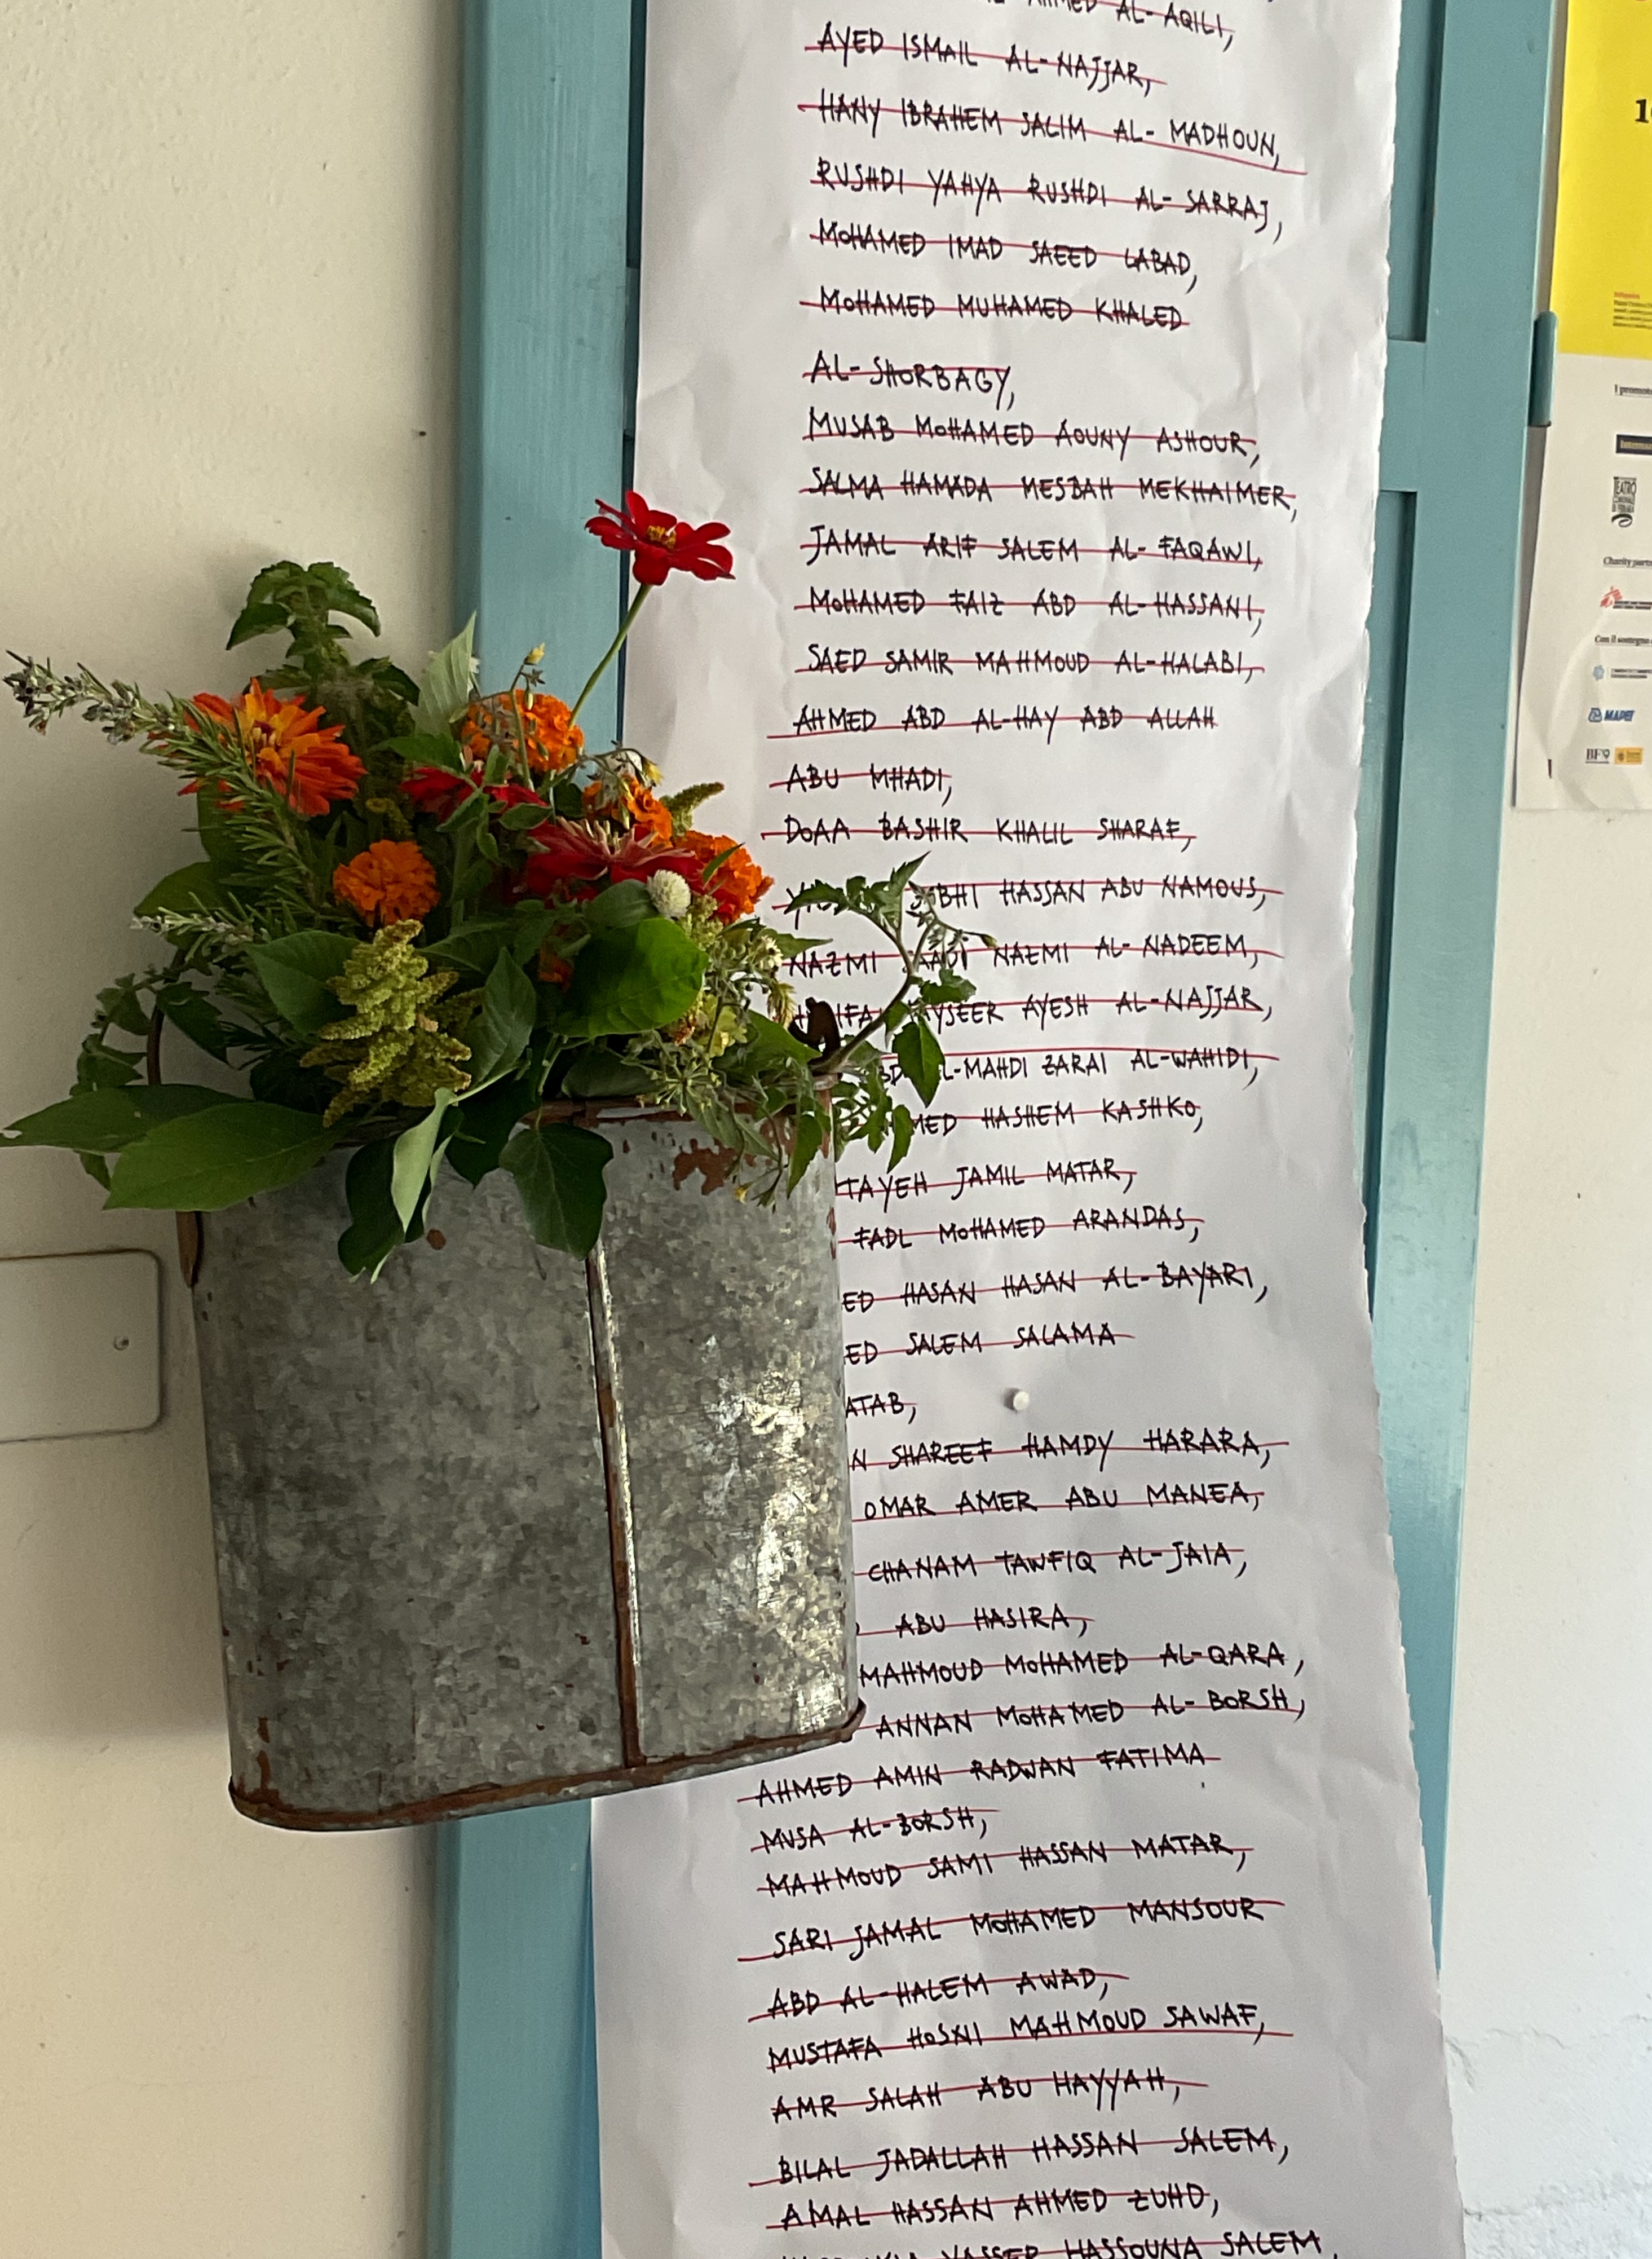 AHMED AL-AQILI,
AYED ISMAIL AL-NAJJAR,
HANY IBRAHEM SALIM AL-MADHOUN,
RUSHDI YAHYA RUSHDI AL-SARRAJ,
MOHAMED IMAD SAEED LABAD,
MOHAMED MUHAMED KHALED
AL-SHORBAGY,
MUSAB MOHAMED AOUNY ASHOUR,
SALMA HAMADA MESBAH MEKHAIMER,
JAMAL ARIF SALEM AL-FAQAWI,
MOHAMED FAIZ ABD AL-HASSANI,
SAED SAMIR MAHMOUD AL-HALABI,
AHMED ABD AL-HAY ABD ALLAH
ABU MHADI,
DOAA BASHIR KHALIL SHARAF,
HASSAN ABU NAMOUS,
NAZMI NAEMI AL-NADEEM,
AYESH AL-NAJJAR,
L-MAHDI ZARAI AL-WAHIDI,
MED HASHEM KASHKO,
TAYEH JAMIL MATAR,
FADL MOHAMED ARANDAS,
ED HASAN HASAN AL-BAYARI,
ED SALEM SALAMA
ATAB,
N SHAREEF HAMDY HARARA,
OMAR AMER ABU MANEA,
CHANAM TAWFIQ AL-JAIA,
ABU HASIRA,
MAHMOUD MOHAMED AL-QARA,
ANNAN MOHAMED AL-BORSH,
AHMED AMIN RADWAN FATIMA
MUSA AL-BORSH,
MAHMOUD SAMI HASSAN MATAR,
SARI JAMAL MOHAMED MANSOUR
ABD AL-HALEM AWAD,
MUSTAFA HOSNI MAHMOUD SAWAF,
AMR SALAH ABU HAYYAH,
BILAL JADALLAH HASSAN SALEM,
AMAL HASSAN AHMED ZUHD,
YASSER HASSOUNA SALEM,
I promoto
TEATRO
Charity part
Con il sostegno
MAPEI